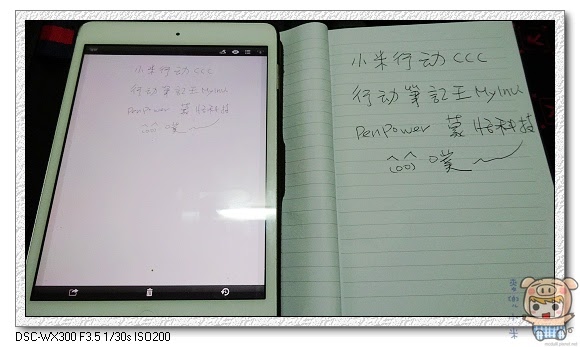 小米行动 CCC
行动筆記王 MyInk
PenPower 蒙恬科技
噗
小米行动 CCC
行动筆記王 MyInk
PenPower 蒙恬科技
噗
DSC-WX300 F3.5 1/30s ISO200